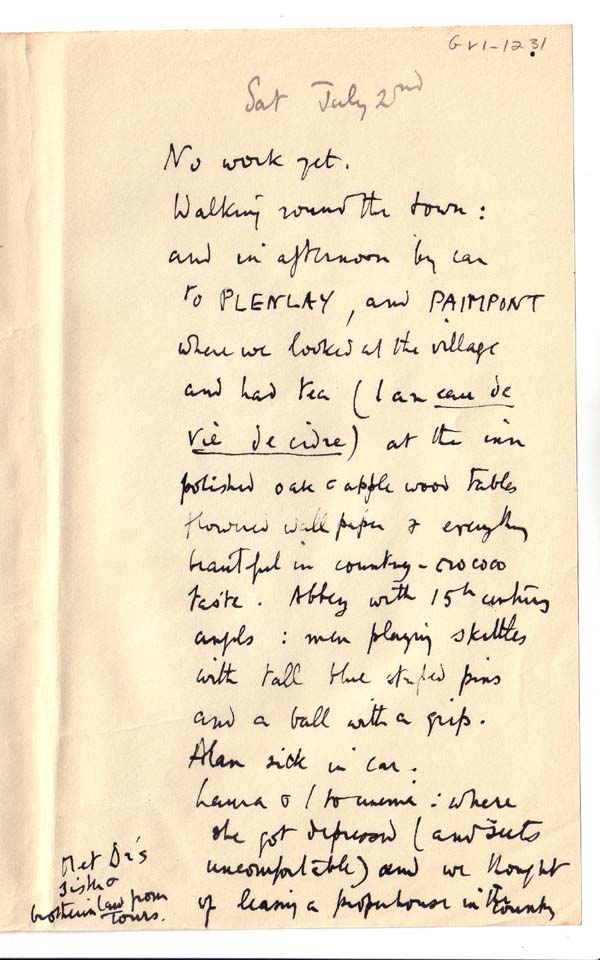 GV1-1231
Sat July 2nd
No work yet.
Walking round the town:
and in afternoon by car
to PLENLAY, and PAIMPONT
where we looked at the village
and had tea (I an eau de
vie de cidre) at the inn
polished oak & apple wood tables
flowered wall paper & everything
beautiful in country-rococo
taste. Abbey with 15th century
angels: men playing skittles
with tall blue striped pins
and a ball with a grip.
Alan sick in car.
Laura & I to cinema: where
she got depressed (and seats
uncomfortable) and we thought
of leasing a proper house in the country
Met Dr's
sister &
brother in law from
Tours.